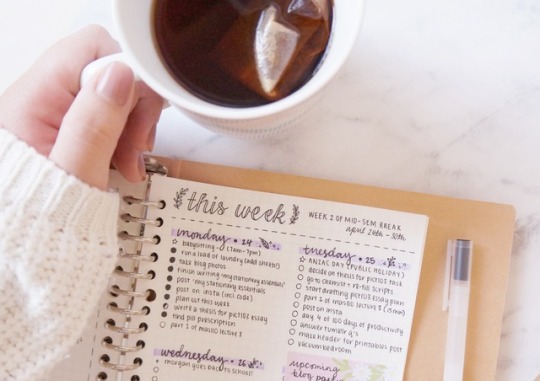 this week
WEEK 2 OF MID-SEM BREAK
april 24th - 30th
monday • 24
babysitting (7am-7pm)
run a load of laundry (add sheets!)
take blog photos
finish writing my stationery essentials
post : my stationery essentials
post on insta (incl code)
plan out this week
write a thesis for PICT102 essay
find pill prescription
part 1 of MAS110 lecture 8
tuesday • 25
ANZAC DAY (PUBLIC HOLIDAY)
decide on thesis for PICT102 task
go to
start drafting PICT102 essay plan
part 2 of MAS110 lecture 8
post on insta
day 4 of 100 days of productivity
answer tumblr q's
make header for printables post
vacuum bedroom
wednesday • 26
morgan goes back to school!
upcoming
blog